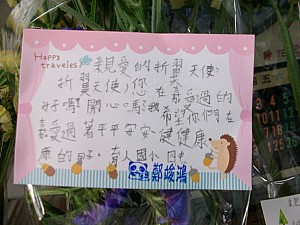 Happy
travelers!
親愛的折翼天使:
折翼天使,您在嘉過的
好嗎?開心嗎?我希望你們在
嘉過著平平安安、健健康
康的日子。育人國小
鄭峻鴻